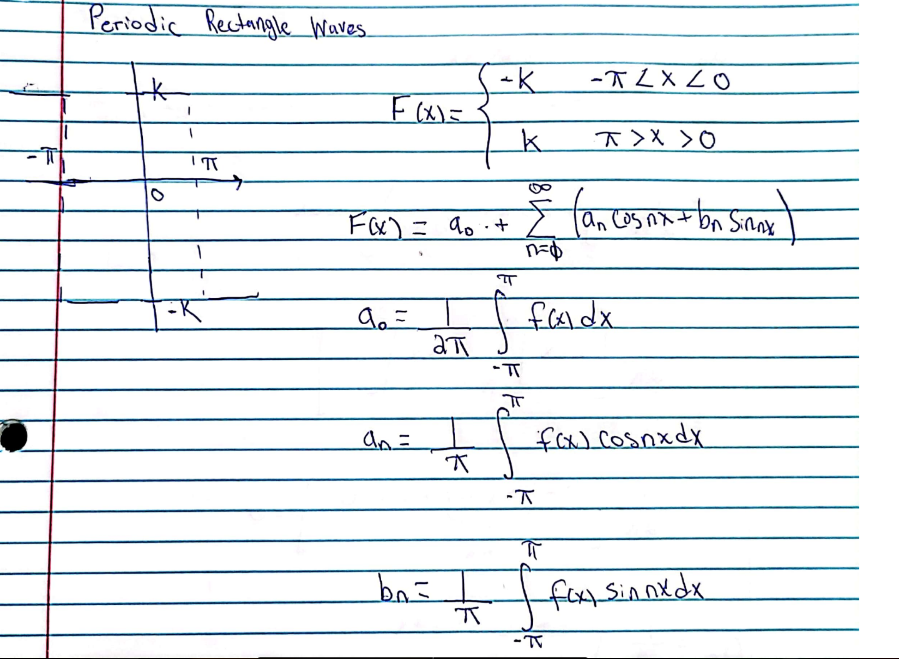 Periodic Rectangle Waves
K
-π
π
0
-K
F(x) = { -K   -π < x < 0
k   π > x > 0
F(x) = a₀ + ∞ Σ n=0 (aₙ cos nx + bₙ sin nx)
a₀ = 1/2π ∫_{-π}^{π} f(x) dx
aₙ = 1/π ∫_{-π}^{π} f(x) cos nx dx
bₙ = 1/π ∫_{-π}^{π} f(x) sin nx dx